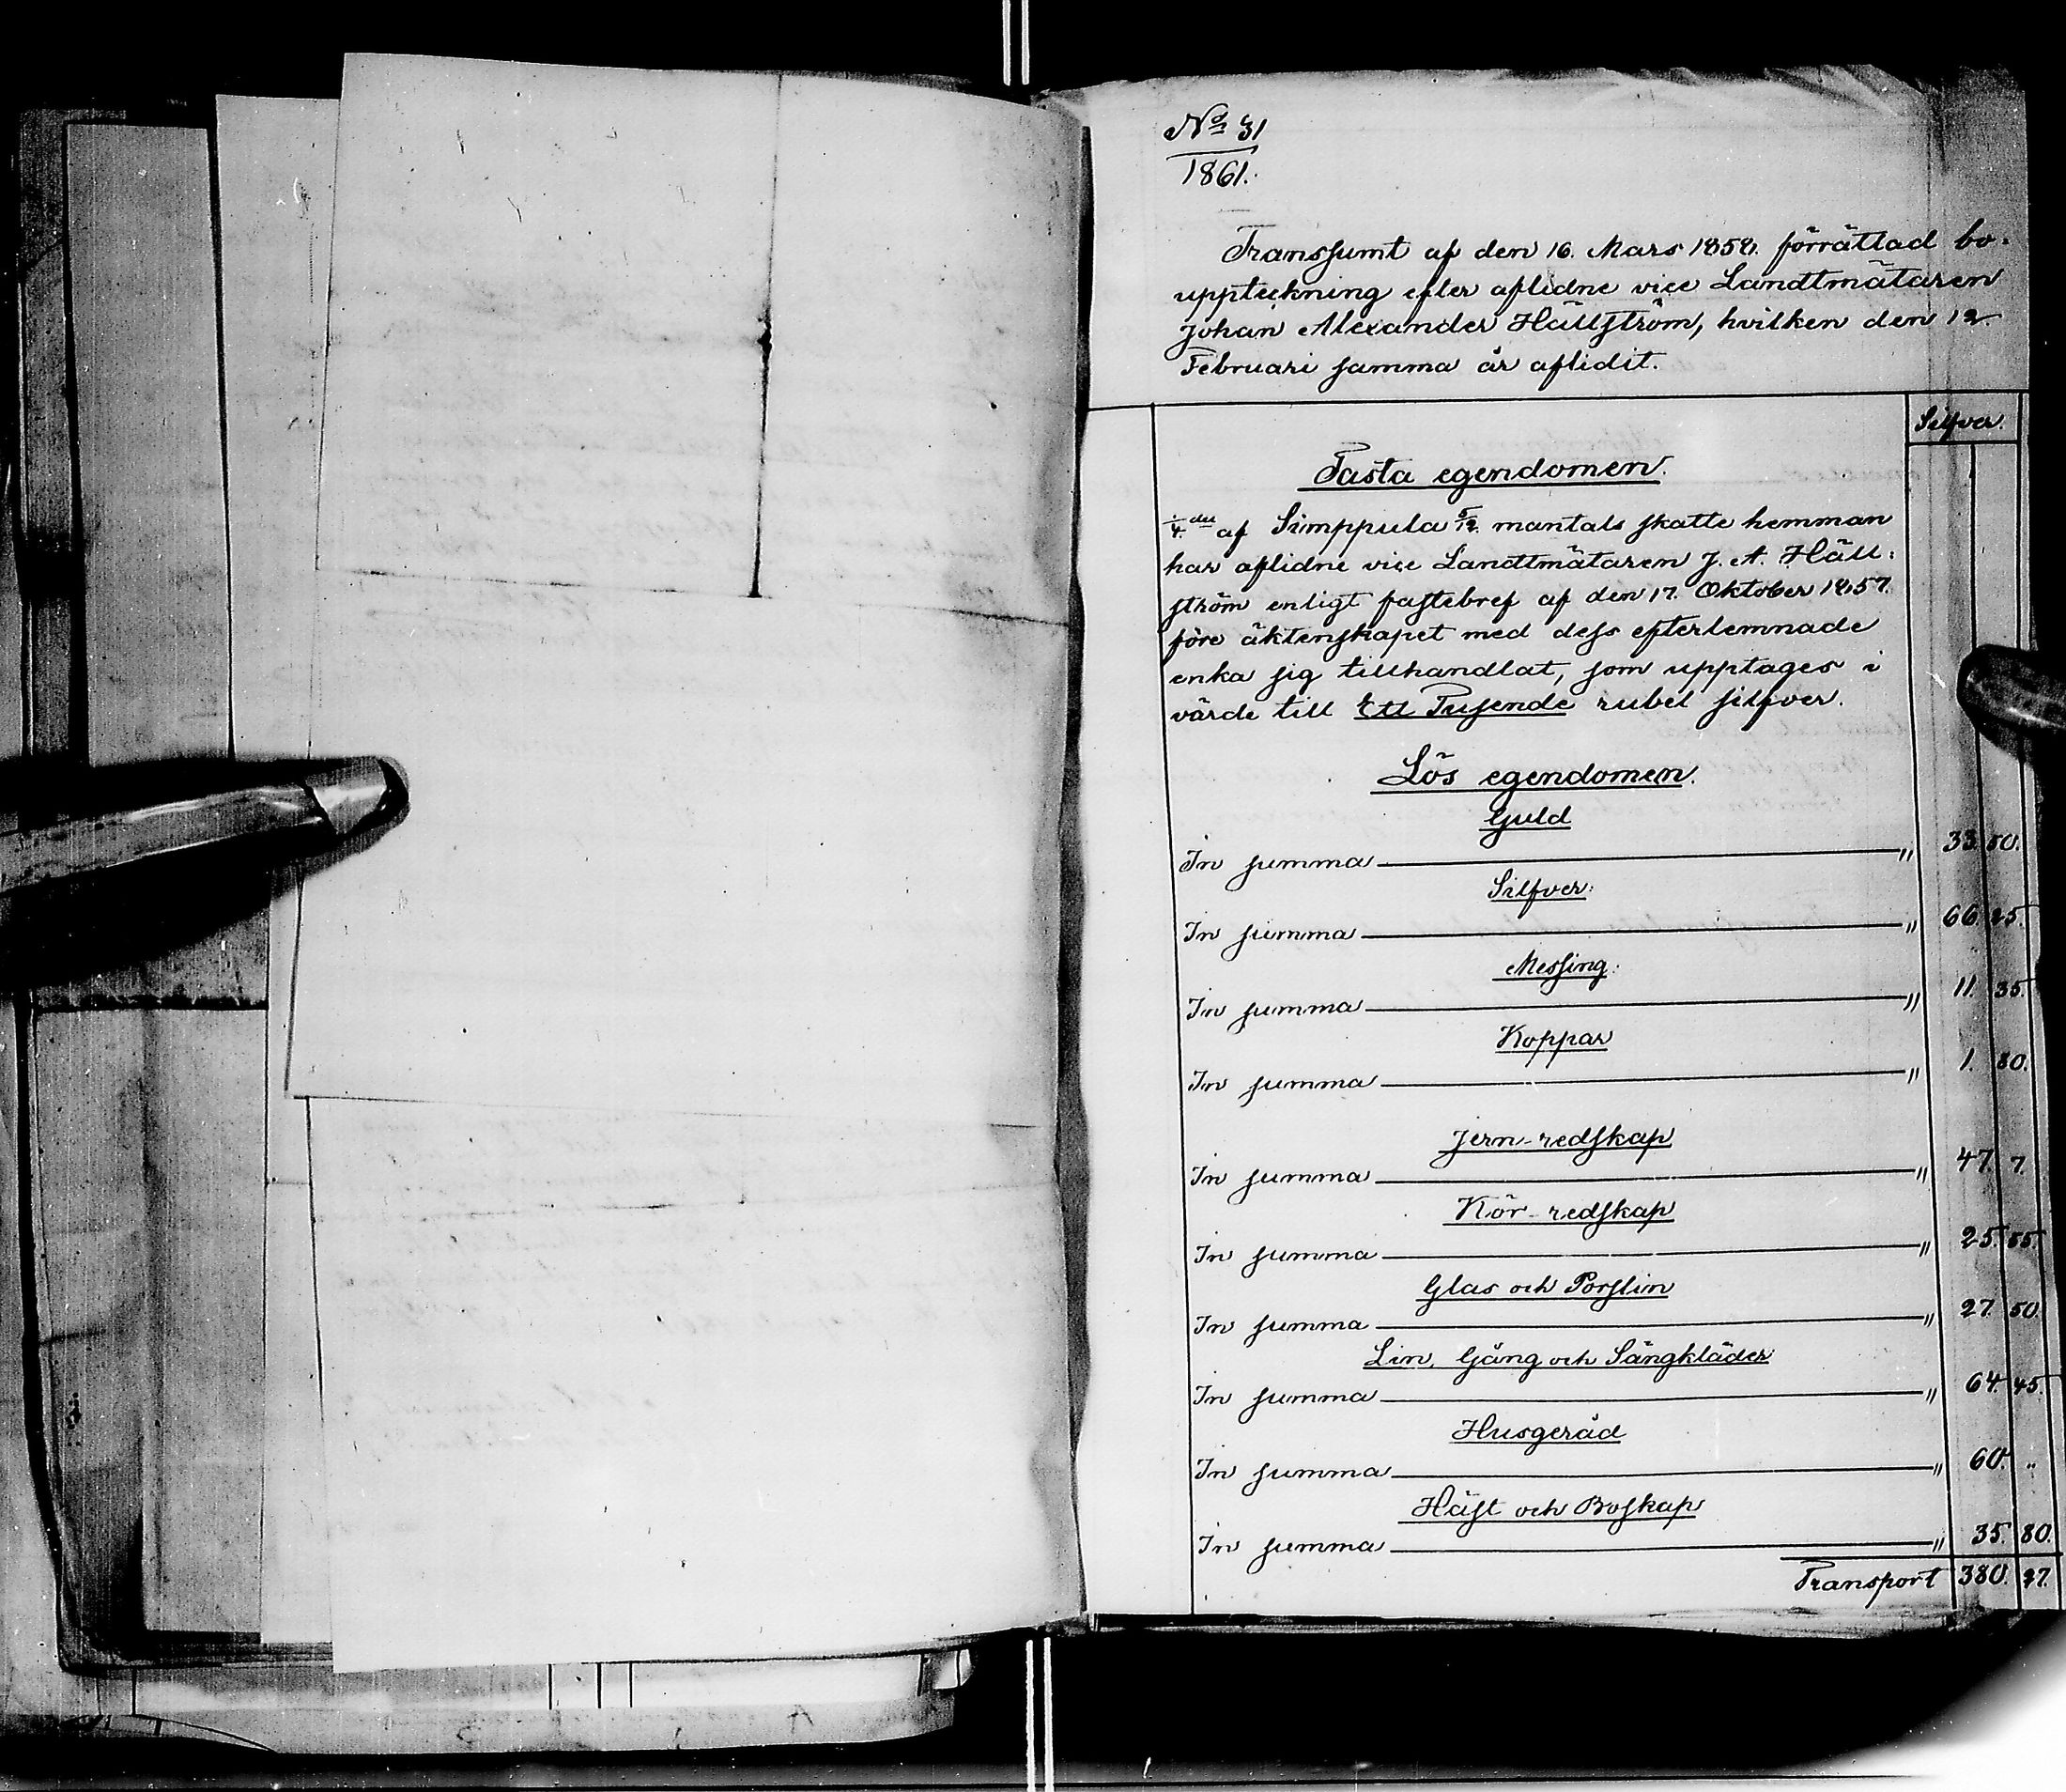 No 31
1861.
Transsumt af den 16. Mars 1858. förrättad bo-
uppteckning efter aflidne vice Landtmätaren
Johan Alexander Hällström, hvilken den 12
Februari samma år aflidit.
Silfver.
Fasta egendomen.
1/4 del af Simppula 5/12 mantals skatte hemman
har aflidne vice Landtmätaren J. A. Häll-
ström enligt fastebref af den 17. Oktober 1857.
före äktenskapet med dess efterlemnade
enka sig tillhandlat, som upptages i
värde till Ett Tusende rubel silfver.
Lös egendomen.
Guld
In summa " 33. 50.
Silfver:
In summa " 66. 25.
Messing:
In summa " 11. 35.
Koppar
In summa " 1. 80.
Jern-redskap
In summa " 47. 7.
Kör-redskap
In summa " 25. 55.
Glas och Porslin
In summa " 27. 50.
Lin, Gång och Sängkläder
In summa " 64. 45.
Husgeråd
In summa " 60. "
Häst och Boskap
In summa " 35. 80.
Transport 380. 27.